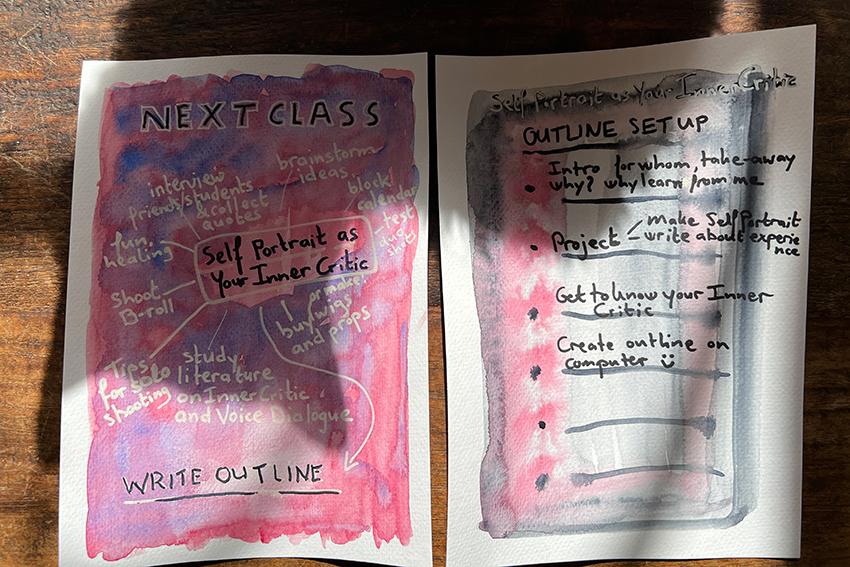 NEXT CLASS
brainstorm
ideas
interview
friends/students
& collect
quotes
block
calendar
test
duo
shots
fun,
healing
Self Portrait as
Your Inner Critic
Shoot
B-roll
or make!
buy wigs
and props
Tips
for solo
shooting
study
literature
on Inner Critic
and Voice Dialogue
WRITE OUTLINE
Self Portrait as Your Inner Critic
OUTLINE SET UP
Intro for whom, take-away
why? why learn from me
Project
make Self Portrait
write about experie
nce
Get to know your Inner
Critic
Create outline on
computer